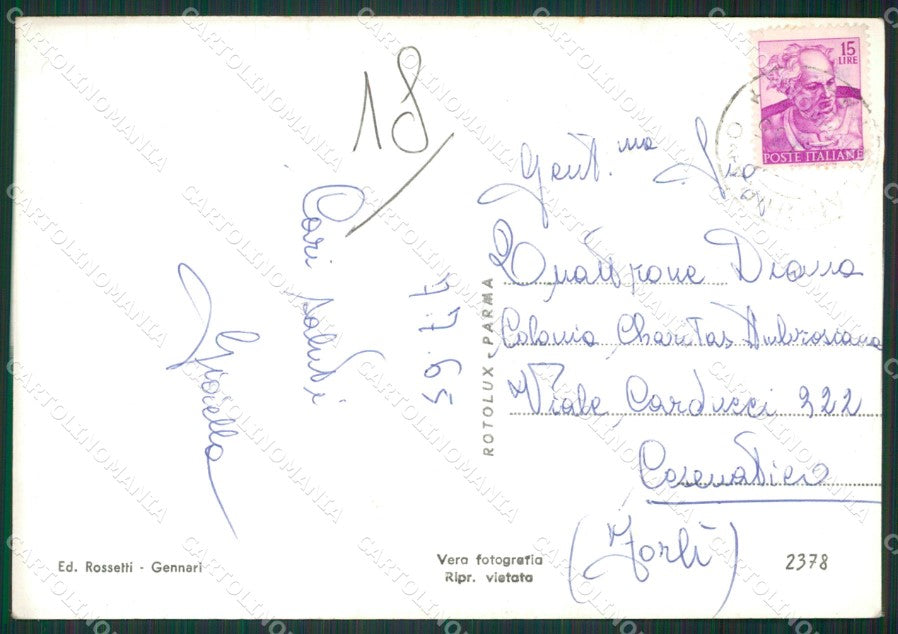 18
Cari saluti
Gioiella
7.7.65
Gent.ma Sig
Quattrone Diana
Colonia Charitas Ambrosiana
Viale Carducci 322
Cesenatico
(Forlì)
15
LIRE
POSTE ITALIANE
ROTOLUX-PARMA
Ed. Rossetti - Gennari
Vera fotografia
Ripr. vietata
2378
CARTOLINOMANIA